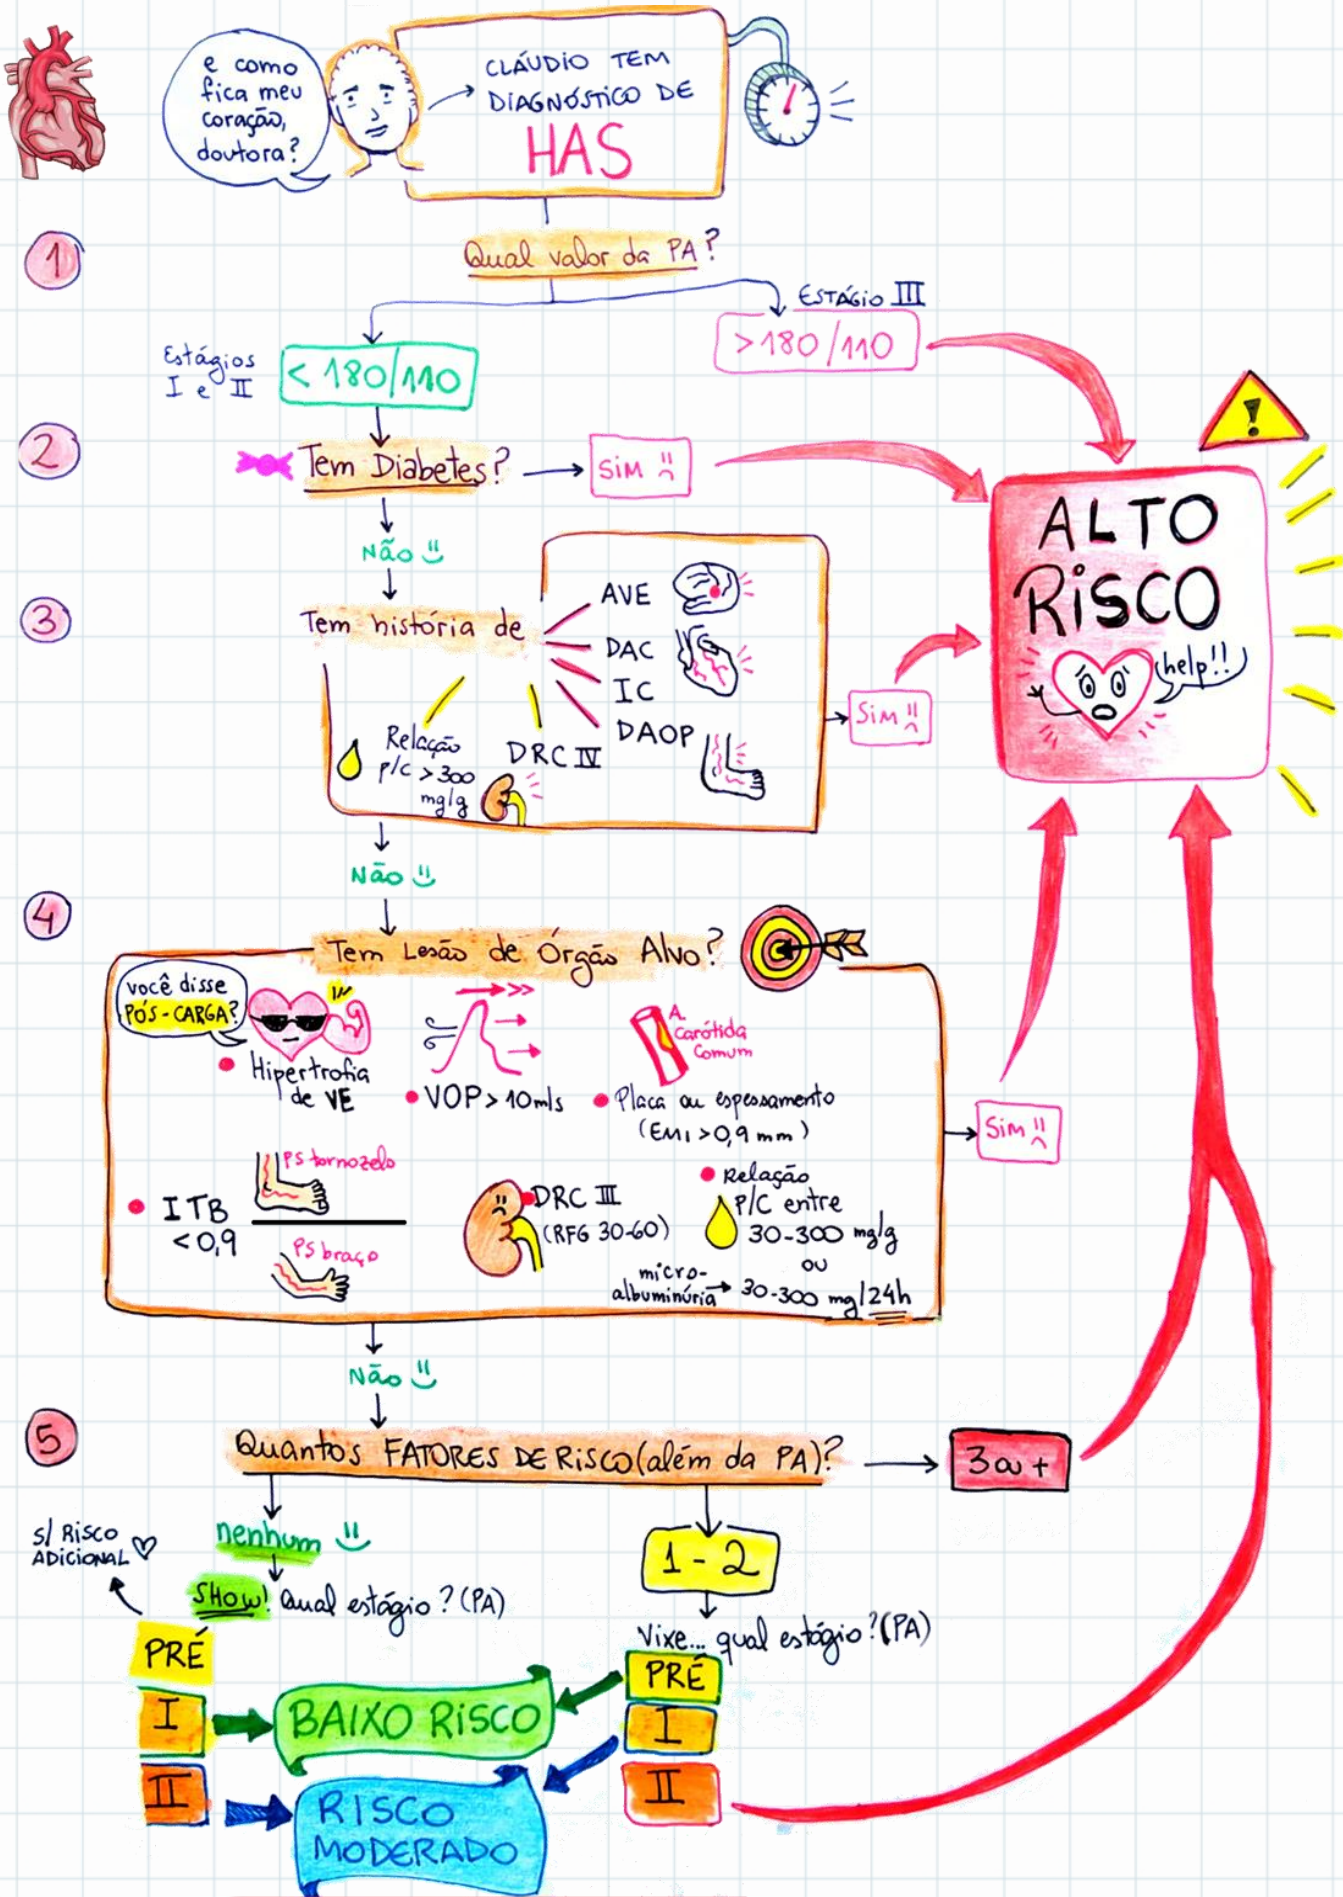 e como
fica meu
coração,
doutora?
CLÁUDIO TEM
DIAGNÓSTICO DE
HAS
1
Qual valor da PA?
ESTÁGIO III
>180/110
Estágios
I e II
< 180/110
2
Tem Diabetes?
SiM
Não
3
Tem história de
AVE
DAC
IC
DAOP
DRC IV
Relação
P/C > 300
mg/g
SiM
ALTO
RiSCO
help!!
Não
4
Tem Lesão de Órgão Alvo?
você disse
PÓS-CARGA?
Hipertrofia
de VE
VOP > 10m/s
A.
Carótida
Comum
Placa ou espessamento
(EMI > 0,9 mm)
SiM
ITB
<0,9
PS tornozelo
PS braço
DRC III
(RFG 30-60)
Relação
P/C entre
30-300 mg/g
ou
micro-
albuminúria → 30-300 mg/24h
Não
5
Quantos FATORES DE RiSCO (além da PA)?
3 ou +
s/ RiSCO
ADICIONAL
nenhum
SHOW! Qual estágio? (PA)
1 - 2
Vixe... qual estágio? (PA)
PRÉ
I
II
PRÉ
I
II
BAIXO RiSCO
RiSCO
MODERADO